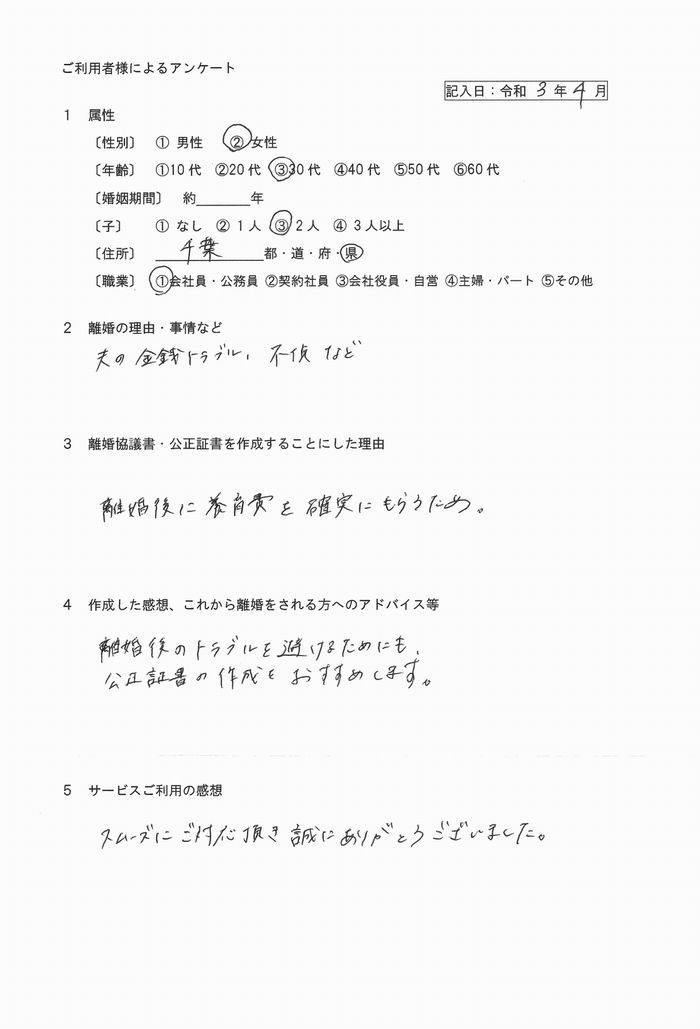 ご利用者様によるアンケート
記入日：令和 3 年 4 月
1 属性
〔性別〕 ① 男性 ② 女性
〔年齢〕 ①10代 ②20代 ③30代 ④40代 ⑤50代 ⑥60代
〔婚姻期間〕 約______年
〔子〕 ① なし ② 1人 ③ 2人 ④ 3人以上
〔住所〕 千葉 都・道・府・県
〔職業〕 ①会社員・公務員 ②契約社員 ③会社役員・自営 ④主婦・パート ⑤その他
2 離婚の理由・事情など
夫の金銭トラブル、不倫など
3 離婚協議書・公正証書を作成することにした理由
離婚後に養育費を確実にもらうため。
4 作成した感想、これから離婚をされる方へのアドバイス等
離婚後のトラブルを避けるためにも、
公正証書の作成をおすすめします。
5 サービスご利用の感想
スムーズにご対応頂き誠にありがとうございました。